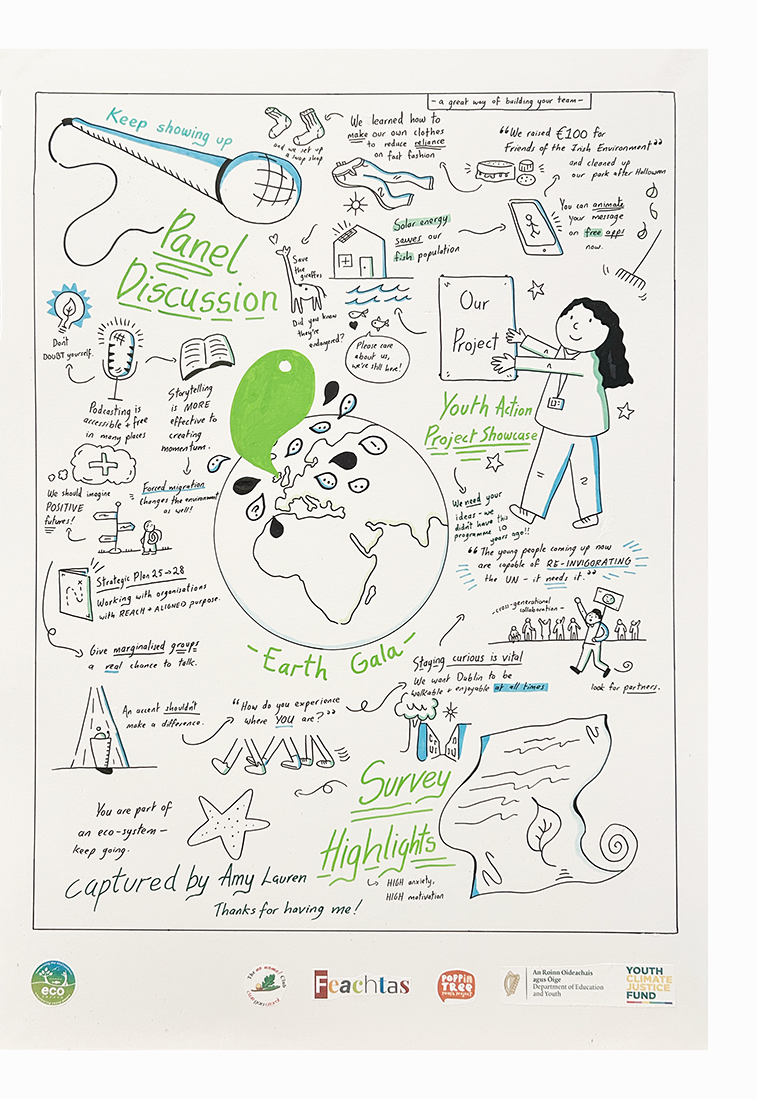 - a great way of building your team -
Keep showing up
and we set up
a swap shop
We learned how to
make our own clothes
to reduce reliance
on fast fashion
"We raised €100 for
Friends of the Irish Environment"
and cleaned up
our park after Halloween
You can animate
your message
on free apps
now.
Solar energy
saves our
fish population
Save
the
giraffes
Did you know
they're
endangered?
Please care
about us,
we're still here!
Panel
Discussion
Don't
DOUBT yourself.
Podcasting is
accessible + free
in many places
Storytelling
is MORE
effective to
creating
momentum.
Forced migration
changes the environment
as well!
We should imagine
POSITIVE
futures!
Our
Project
Youth Action
Project Showcase
We need your
ideas - we
didn't have this
programme 10
years ago!!
"The young people coming up now
are capable of RE-INVIGORATING
the UN - it needs it."
- cross-generational
collaboration -
look for partners.
Strategic Plan 25→28
Working with organisations
with REACH + ALIGNED purpose.
Give marginalised groups
a real chance to talk.
An accent shouldn't
make a difference.
- Earth Gala -
"How do you experience
where YOU are?"
Staying curious is vital
We want Dublin to be
walkable + enjoyable at all times
Survey
Highlights
HIGH anxiety,
HIGH motivation
You are part of
an eco-system -
keep going.
captured by Amy Lauren
Thanks for having me!
eco
Feachtas
POPPIN
TREE
YOUTH PROJECT
An Roinn Oideachais
agus Óige
Department of Education
and Youth
YOUTH
CLIMATE
JUSTICE
FUND